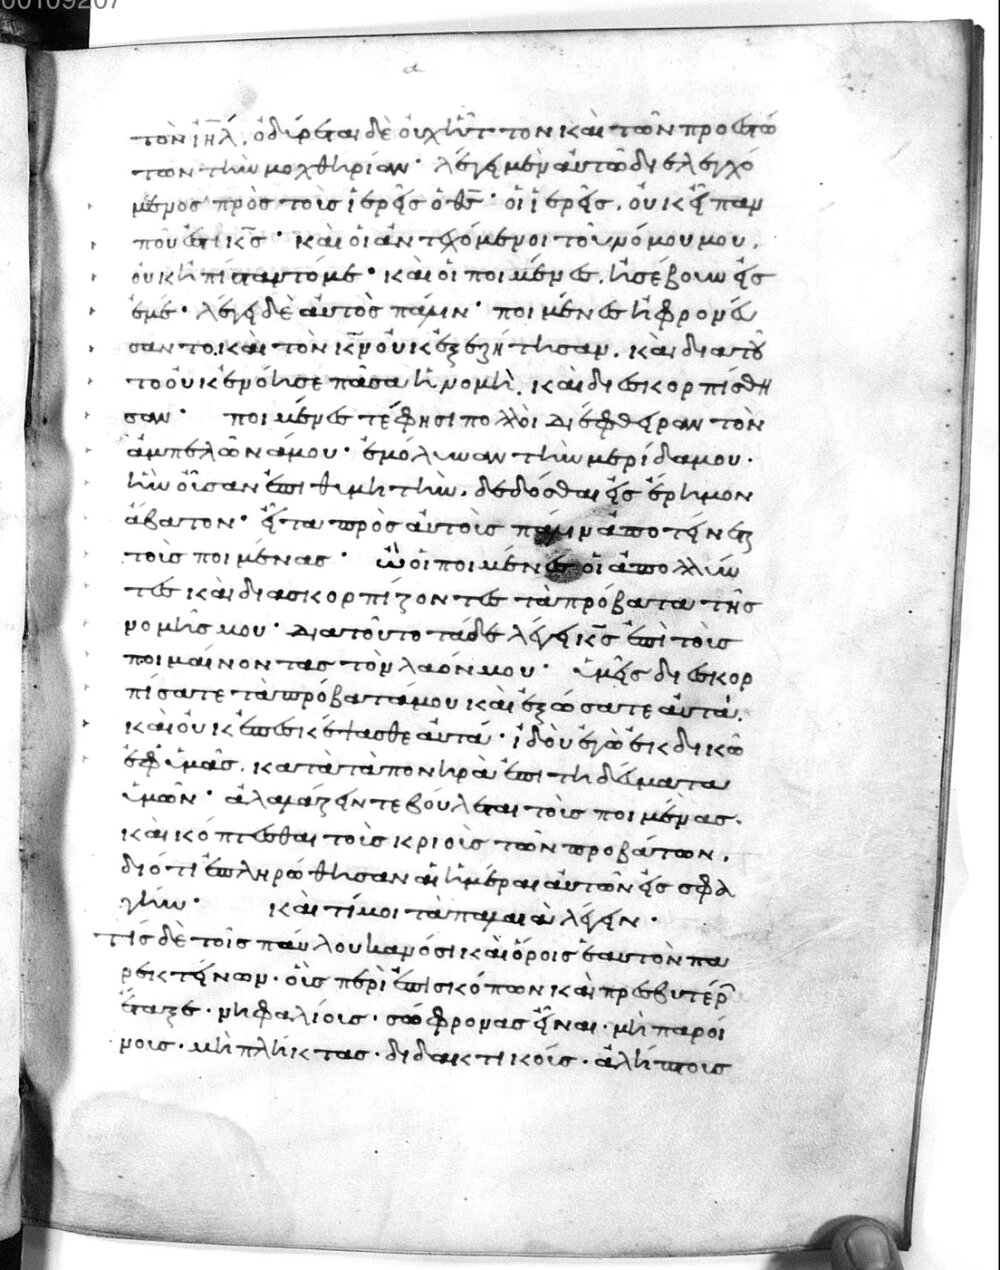 00109207
τὸν ἰη̅λ. ὀδύρεται δὲ οὐχ ἧττον καὶ τῶν προεστώ
των τὴν μοχθηρίαν· λέγει μὲν αὐτῶ διελεγχό
μενος πρὸς τοὺς ἱερεῖς ὁ θς̅· οἱ ἱερεῖς, οὐκ εἶπαν
ποῦ ἐστι κς̅· καὶ οἱ ἀντεχόμενοι τοῦ νόμου μου,
οὐκ ἠπίσταντό με· καὶ οἱ ποιμένες, ἠσέβουν εἰς
ἐμέ· λέγει δὲ αὐτὸς πάλιν· ποιμένες ἠφρονεύ
σαντο, καὶ τὸν κν̅ οὐκ ἐξεζήτησαν. καὶ διατοῦ
το οὐκ ἐνόησε πᾶσα ἡ νομὴ, καὶ διεσκορπίσθη
σαν· ποιμένες τέ φησι πολλοὶ διέφθειραν τὸν
ἀμπελῶνά μου· ἐμόλυναν τὴν μερίδα μου·
ἣν οὖσαν ἐπιθυμητὴν, δεδόσθαι εἰς ἔρημον
ἄβατον· εἶτα πρὸς αὐτοὺς πάλιν ἀποτείνεται
τοὺς ποιμένας· ὢ οἱ ποιμένες οἱ ἀπολλύν
τες καὶ διασκορπίζοντες τὰ πρόβατα τῆς
νομῆς μου· διατοῦτο τάδε λέγει κς̅ ἐπὶ τοὺς
ποιμαίνοντας τὸν λαόν μου· ὑμεῖς διεσκορ
πίσατε τὰ πρόβατά μου καὶ ἐξώσατε αὐτά.
καὶ οὐκ ἐπεσκέψασθε αὐτά· ἰδοὺ ἐγὼ ἐκδικῶ
ἐφ' ὑμᾶς, κατὰ τὰ πονηρὰ ἐπιτηδεύματα
ὑμῶν· ἀλαλάζειν τε βούλεται τοὺς ποιμένας.
καὶ κόπτεσθαι τοὺς κριοὺς τῶν προβάτων.
διότι ἐπληρώθησαν αἱ ἡμέραι αὐτῶν εἰς σφα
γήν· καὶ τί μοι τὰ παλαιὰ λέγειν·
τίς δὲ τοῖς παύλου κανόσι καὶ ὅροις ἑαυτὸν πα
ρεκτείνων· οὓς περὶ ἐπισκόπων καὶ πρεσβυτέρ
ἔταξε· νηφαλίους· σώφρονας εἶναι· μὴ παροί
νους· μὴ πλήκτας· διδακτικούς· ἀλήπτους